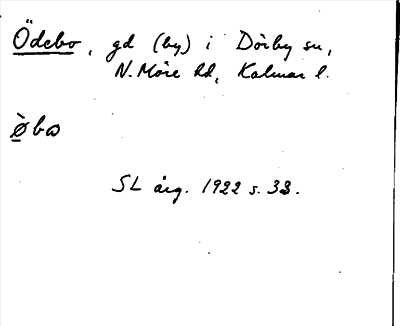 Ödebo, gd (by) i Dörby sn,
N. Möre hd, Kalmar l.
ø̀bω
SL årg. 1922 s. 33.